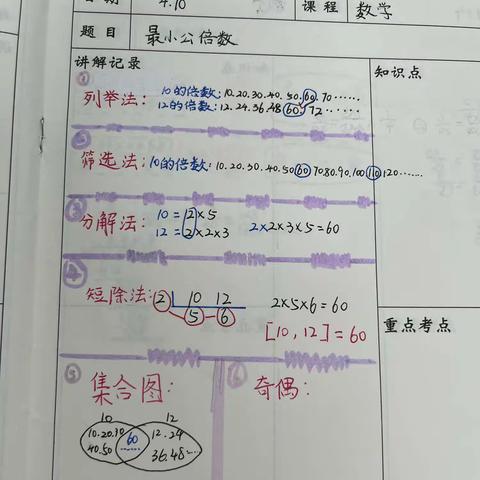 4.10
课程 数学
题目 最小公倍数
讲解记录
知识点
①
列举法：
10的倍数：10.20.30.40.50.60.70……
12的倍数：12.24.36.48 60.72……
②
筛选法：10的倍数：10.20.30.40.50 60 70 80.90.100 110 120……
③
分解法：
10=2×5
12=2×2×3
2×2×3×5=60
④
短除法：2 10 12
5 6
2×5×6=60
[10,12]=60
重点考点
⑤
集合图：
⑥
奇偶：
10 12
10.20.30
40.50
60
12.24
36.48…